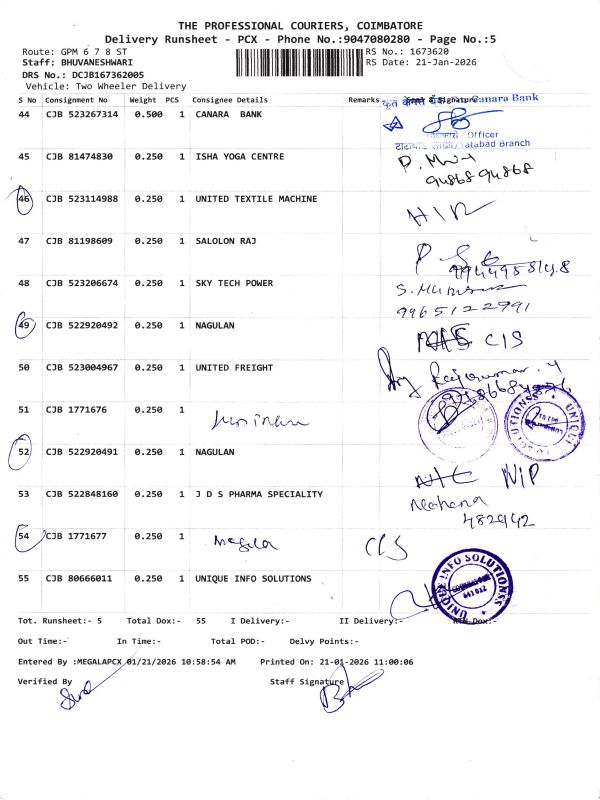 THE PROFESSIONAL COURIERS, COIMBATORE
Delivery Runsheet - PCX - Phone No.:9047080280 - Page No.:5
Route: GPM 6 7 8 ST
RS No.: 1673620
Staff: BHUVANESHWARI
RS Date: 21-Jan-2026
DRS No.: DCJB167362005
Vehicle: Two Wheeler Delivery
S No Consignment No Weight PCS Consignee Details Remarks Signature
Canara Bank
44 CJB 523267314 0.500 1 CANARA BANK
Officer
Branch
45 CJB 81474830 0.250 1 ISHA YOGA CENTRE
94868 94868
46 CJB 523114988 0.250 1 UNITED TEXTILE MACHINE
47 CJB 81198609 0.250 1 SALOLON RAJ
48 CJB 523206674 0.250 1 SKY TECH POWER
9965122791
49 CJB 522920492 0.250 1 NAGULAN
CIS
50 CJB 523004967 0.250 1 UNITED FREIGHT
51 CJB 1771676 0.250 1
52 CJB 522920491 0.250 1 NAGULAN
NIP
53 CJB 522848160 0.250 1 J D S PHARMA SPECIALITY
482942
54 CJB 1771677 0.250 1
55 CJB 80666011 0.250 1 UNIQUE INFO SOLUTIONS
UNIQUE INFO SOLUTIONSS
Tot. Runsheet:- 5 Total Dox:- 55 I Delivery:- II Delivery:- RTN Dox:-
Out Time:- In Time:- Total POD:- Delvy Points:-
Entered By :MEGALAPCX 01/21/2026 10:58:54 AM Printed On: 21-01-2026 11:00:06
Verified By Staff Signature